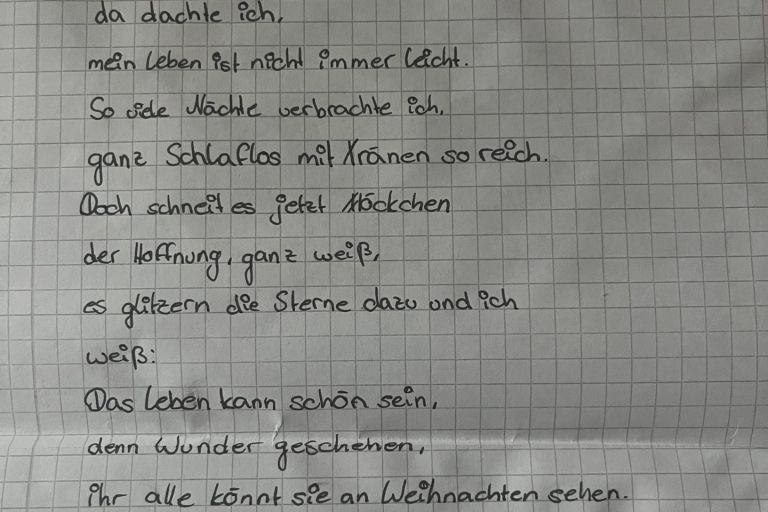 da dachte ich,
mein Leben ist nicht immer leicht.
So viele Nächte verbrachte ich,
ganz Schlaflos mit Tränen so reich.
Doch schneit es jetzt Flöckchen
der Hoffnung, ganz weiß,
es glitzern die Sterne dazu und ich
weiß:
Das Leben kann schön sein,
denn Wunder geschehen,
ihr alle könnt sie an Weihnachten sehen.